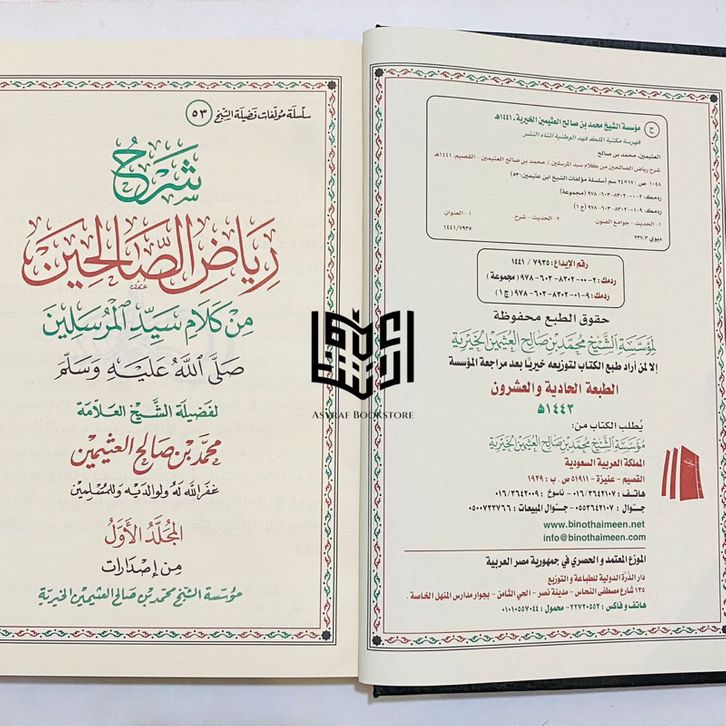 سلسلة مؤلفات فضيلة الشيخ ٥٣
شرح
رياض الصالحين
من كلام سيد المرسلين
صلى الله عليه وسلم
لفضيلة الشيخ العلامة
محمد بن صالح العثيمين
غفر الله له ولوالديه وللمسلمين
المجلد الأول
من إصدارات
مؤسسة الشيخ محمد بن صالح العثيمين الخيرية
ح مؤسسة الشيخ محمد بن صالح العثيمين الخيرية، ١٤٤١هـ
فهرسة مكتبة الملك فهد الوطنية أثناء النشر
العثيمين، محمد بن صالح
شرح رياض الصالحين من كلام سيد المرسلين / محمد بن صالح العثيمين - القصيم، ١٤٤١هـ
١٠٤٨ ص؛ ١٧×٢٤ سم (سلسلة مؤلفات الشيخ ابن عثيمين؛ ٥٣)
ردمك: ٢-٠٠-٨٣٠٢-٦٠٣-٩٧٨ (مجموعة)
ردمك: ٩-٠١-٨٣٠٢-٦٠٣-٩٧٨ (ج ١)
١- الحديث - جوامع الفنون. ٢- الحديث - شرح. أ- العنوان
ديوي ٢٣٧,٣ ١٤٤١/٧٩٣٥
رقم الإيداع: ٧٩٣٥ / ١٤٤١
ردمك: ٢-٠٠-٨٣٠٢-٦٠٣-٩٧٨ (مجموعة)
ردمك: ٩-٠١-٨٣٠٢-٦٠٣-٩٧٨ (ج ١)
حقوق الطبع محفوظة
لمؤسسة الشيخ محمد بن صالح العثيمين الخيرية
إلا لمن أراد طبع الكتاب لتوزيعه خيريًا بعد مراجعة المؤسسة
الطبعة الحادية والعشرون
١٤٤٣هـ
يُطلب الكتاب من:
مؤسسة الشيخ محمد بن صالح العثيمين الخيرية
المملكة العربية السعودية
القصيم - عنيزة - ٥١٩١١ ص. ب: ١٩٢٩
هاتف: ٠١٦/٣٦٤٢١٠٧ - ناسوخ: ٠١٦/٣٦٤٢٠٠٩
جوال: ٠٥٥٣٦٤٢١٠٧ - جوال المبيعات: ٠٥٠٠٧٣٣٧٦٦
www.binothaimeen.net
info@binothaimeen.com
الموزع المعتمد والحصري في جمهورية مصر العربية
دار الدُّرة الدولية للطباعة و التوزيع
١٣٥ شارع مصطفى النحاس - مدينة نصر - الحي الثامن - بجوار مدارس المنهل الخاصة.
هاتف و فاكس: ٢٢٧٢٠٥٥٢ - محمول: ٠١٠١٠٥٥٧٠٤٤
Asyraf Bookstore